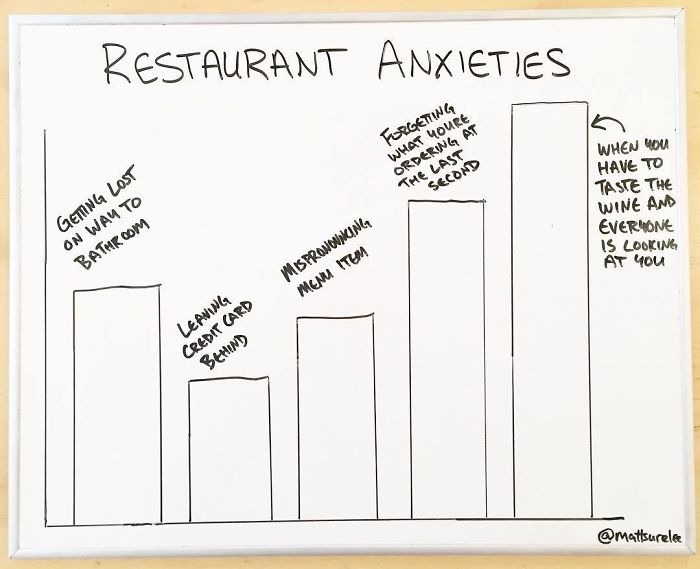 RESTAURANT ANXIETIES
GETTING LOST
ON WAY TO
BATHROOM
LEAVING
CREDIT CARD
BEHIND
MISPRONOUNCING
MENU ITEM
FORGETTING
WHAT YOURE
ORDERING AT
THE LAST
SECOND
WHEN YOU
HAVE TO
TASTE THE
WINE AND
EVERYONE
IS LOOKING
AT YOU
@mattsurelee